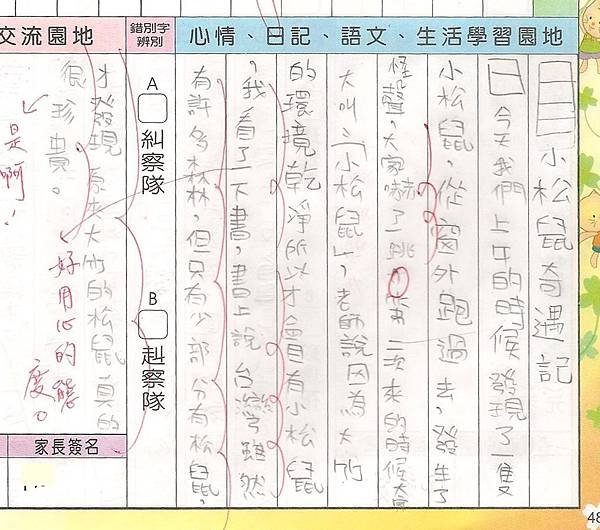 心情、日記、語文、生活學習園地
錯別字
辨別
交流園地
日日 小松鼠奇遇記
日 今天我們上午的時候發現了一隻
小松鼠,從窗外跑過去,發生了
怪聲,大家嚇了一跳,第二次來的時候大家
大叫:「小松鼠」,老師說因為大竹
的環境乾淨所以才會有小松鼠
,我看了一下書,書上說台灣雖然
有許多森林,但只有少部分有松鼠,
A
糾察隊
B
赳察隊
才發現原來大竹的松鼠真的
很珍貴。
好用心的態
度。
是啊!
家長簽名
48